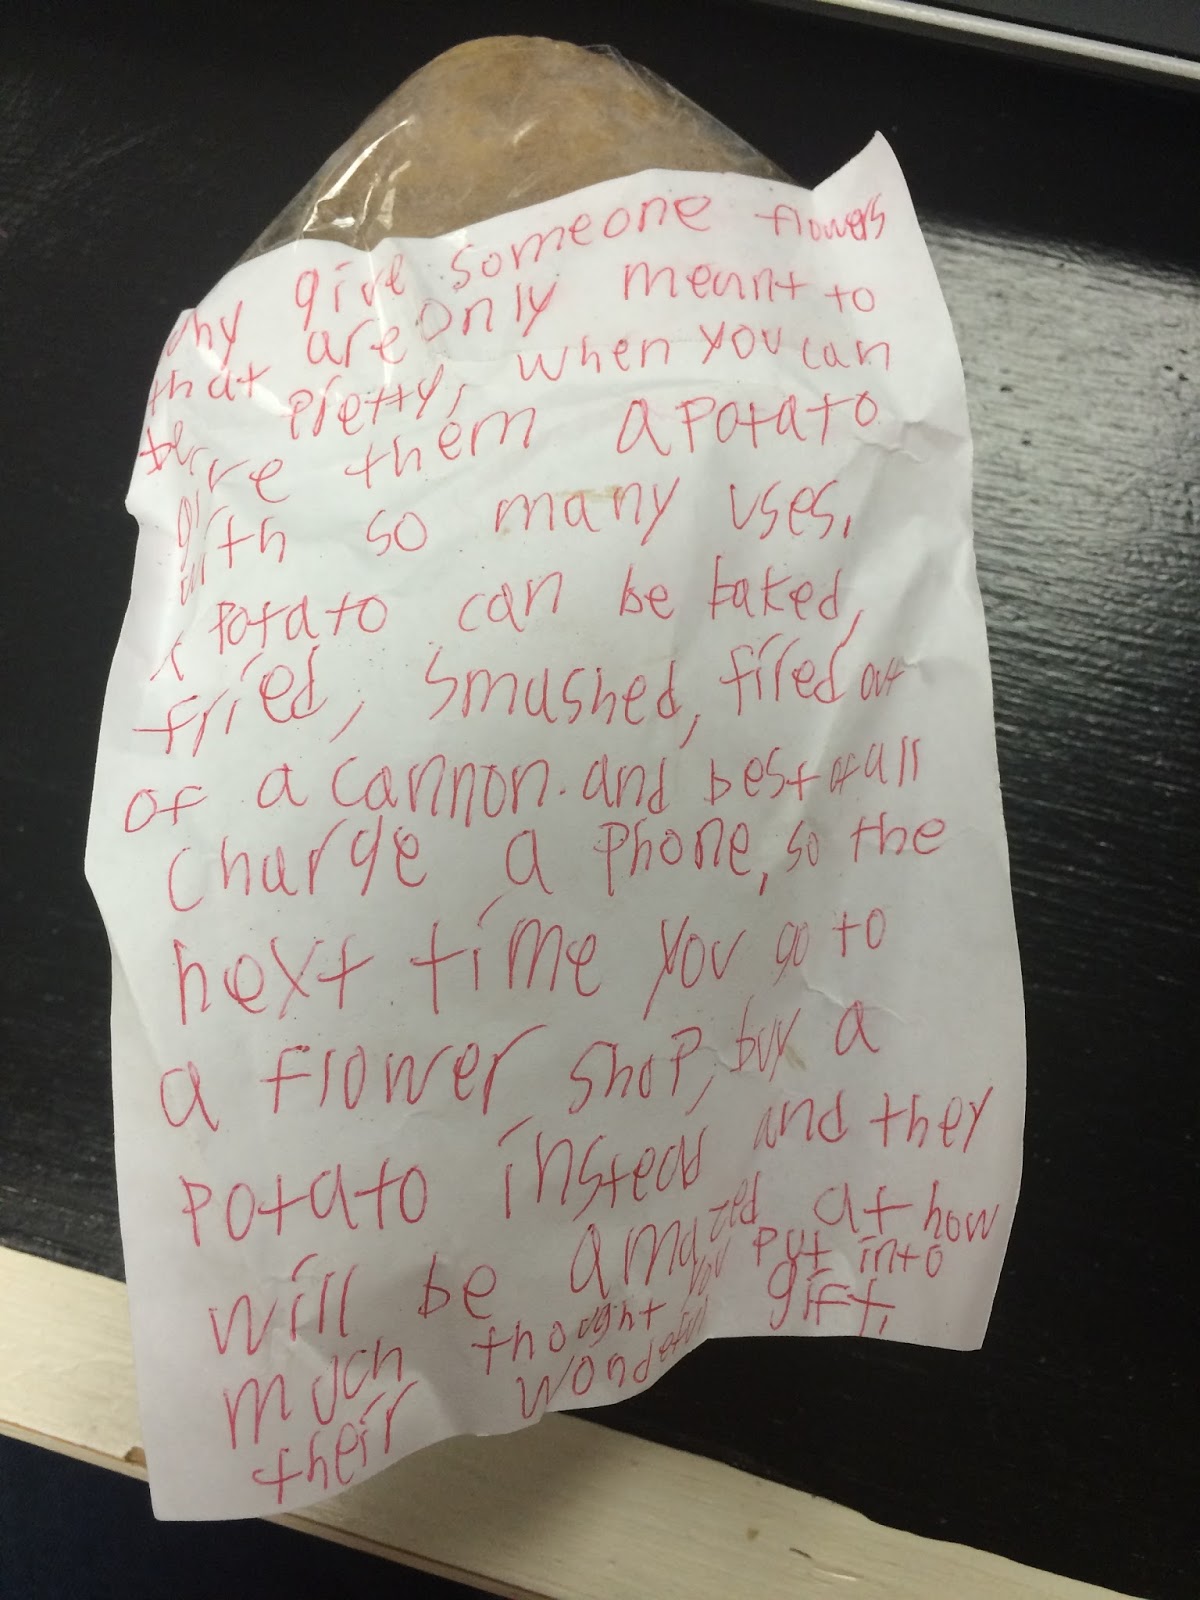 why give someone flowers
that are only meant to
be pretty, when you can
give them a potato
with so many uses.
A potato can be baked,
fried, smashed, fired out
of a cannon. and best of all
charge a phone, so the
next time you go to
a flower shop, buy a
potato instead and they
will be amazed at how
much thought you put into
their wondefull gift.